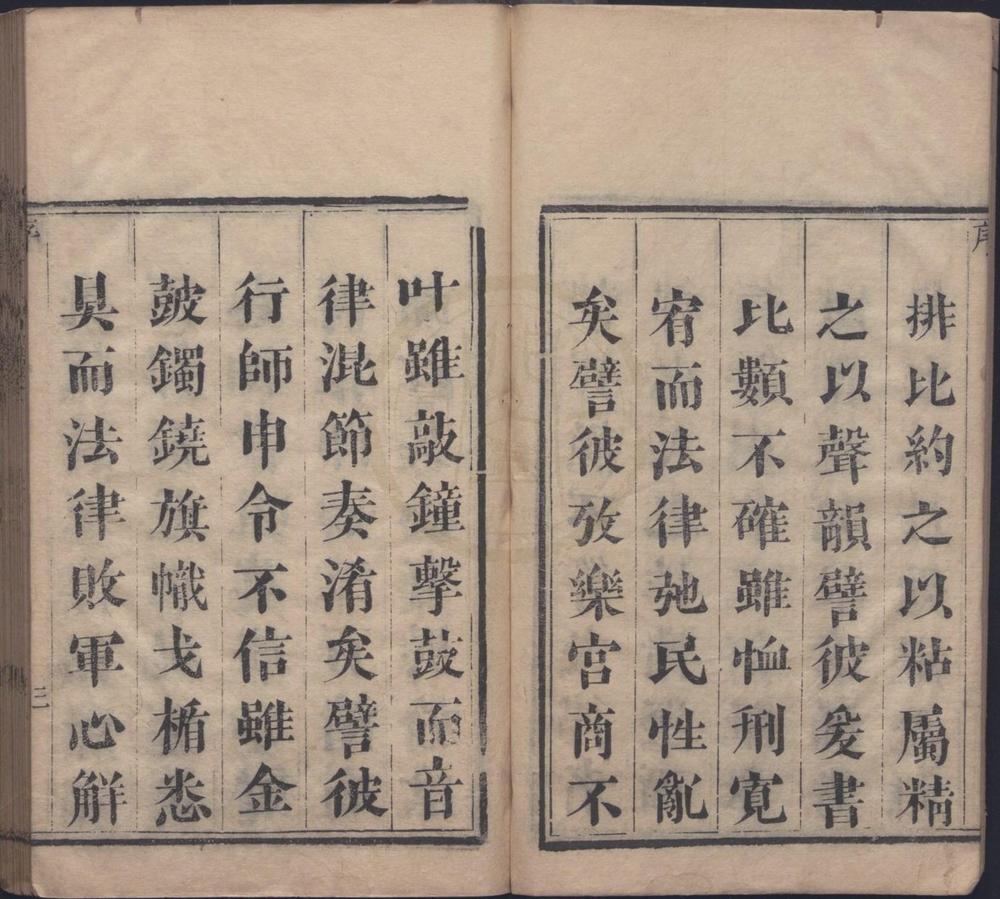 序
排比約之以粘屬精
之以聲韻譬彼爰書
比類不確雖恤刑寛
宥而法律弛民性亂
矣譬彼攷樂宮商不
叶雖敲鐘擊鼓而音
律混節奏淆矣譬彼
行師申令不信雖金
鼓鐲鐃旗幟戈楯悉
具而法律敗軍心解
三